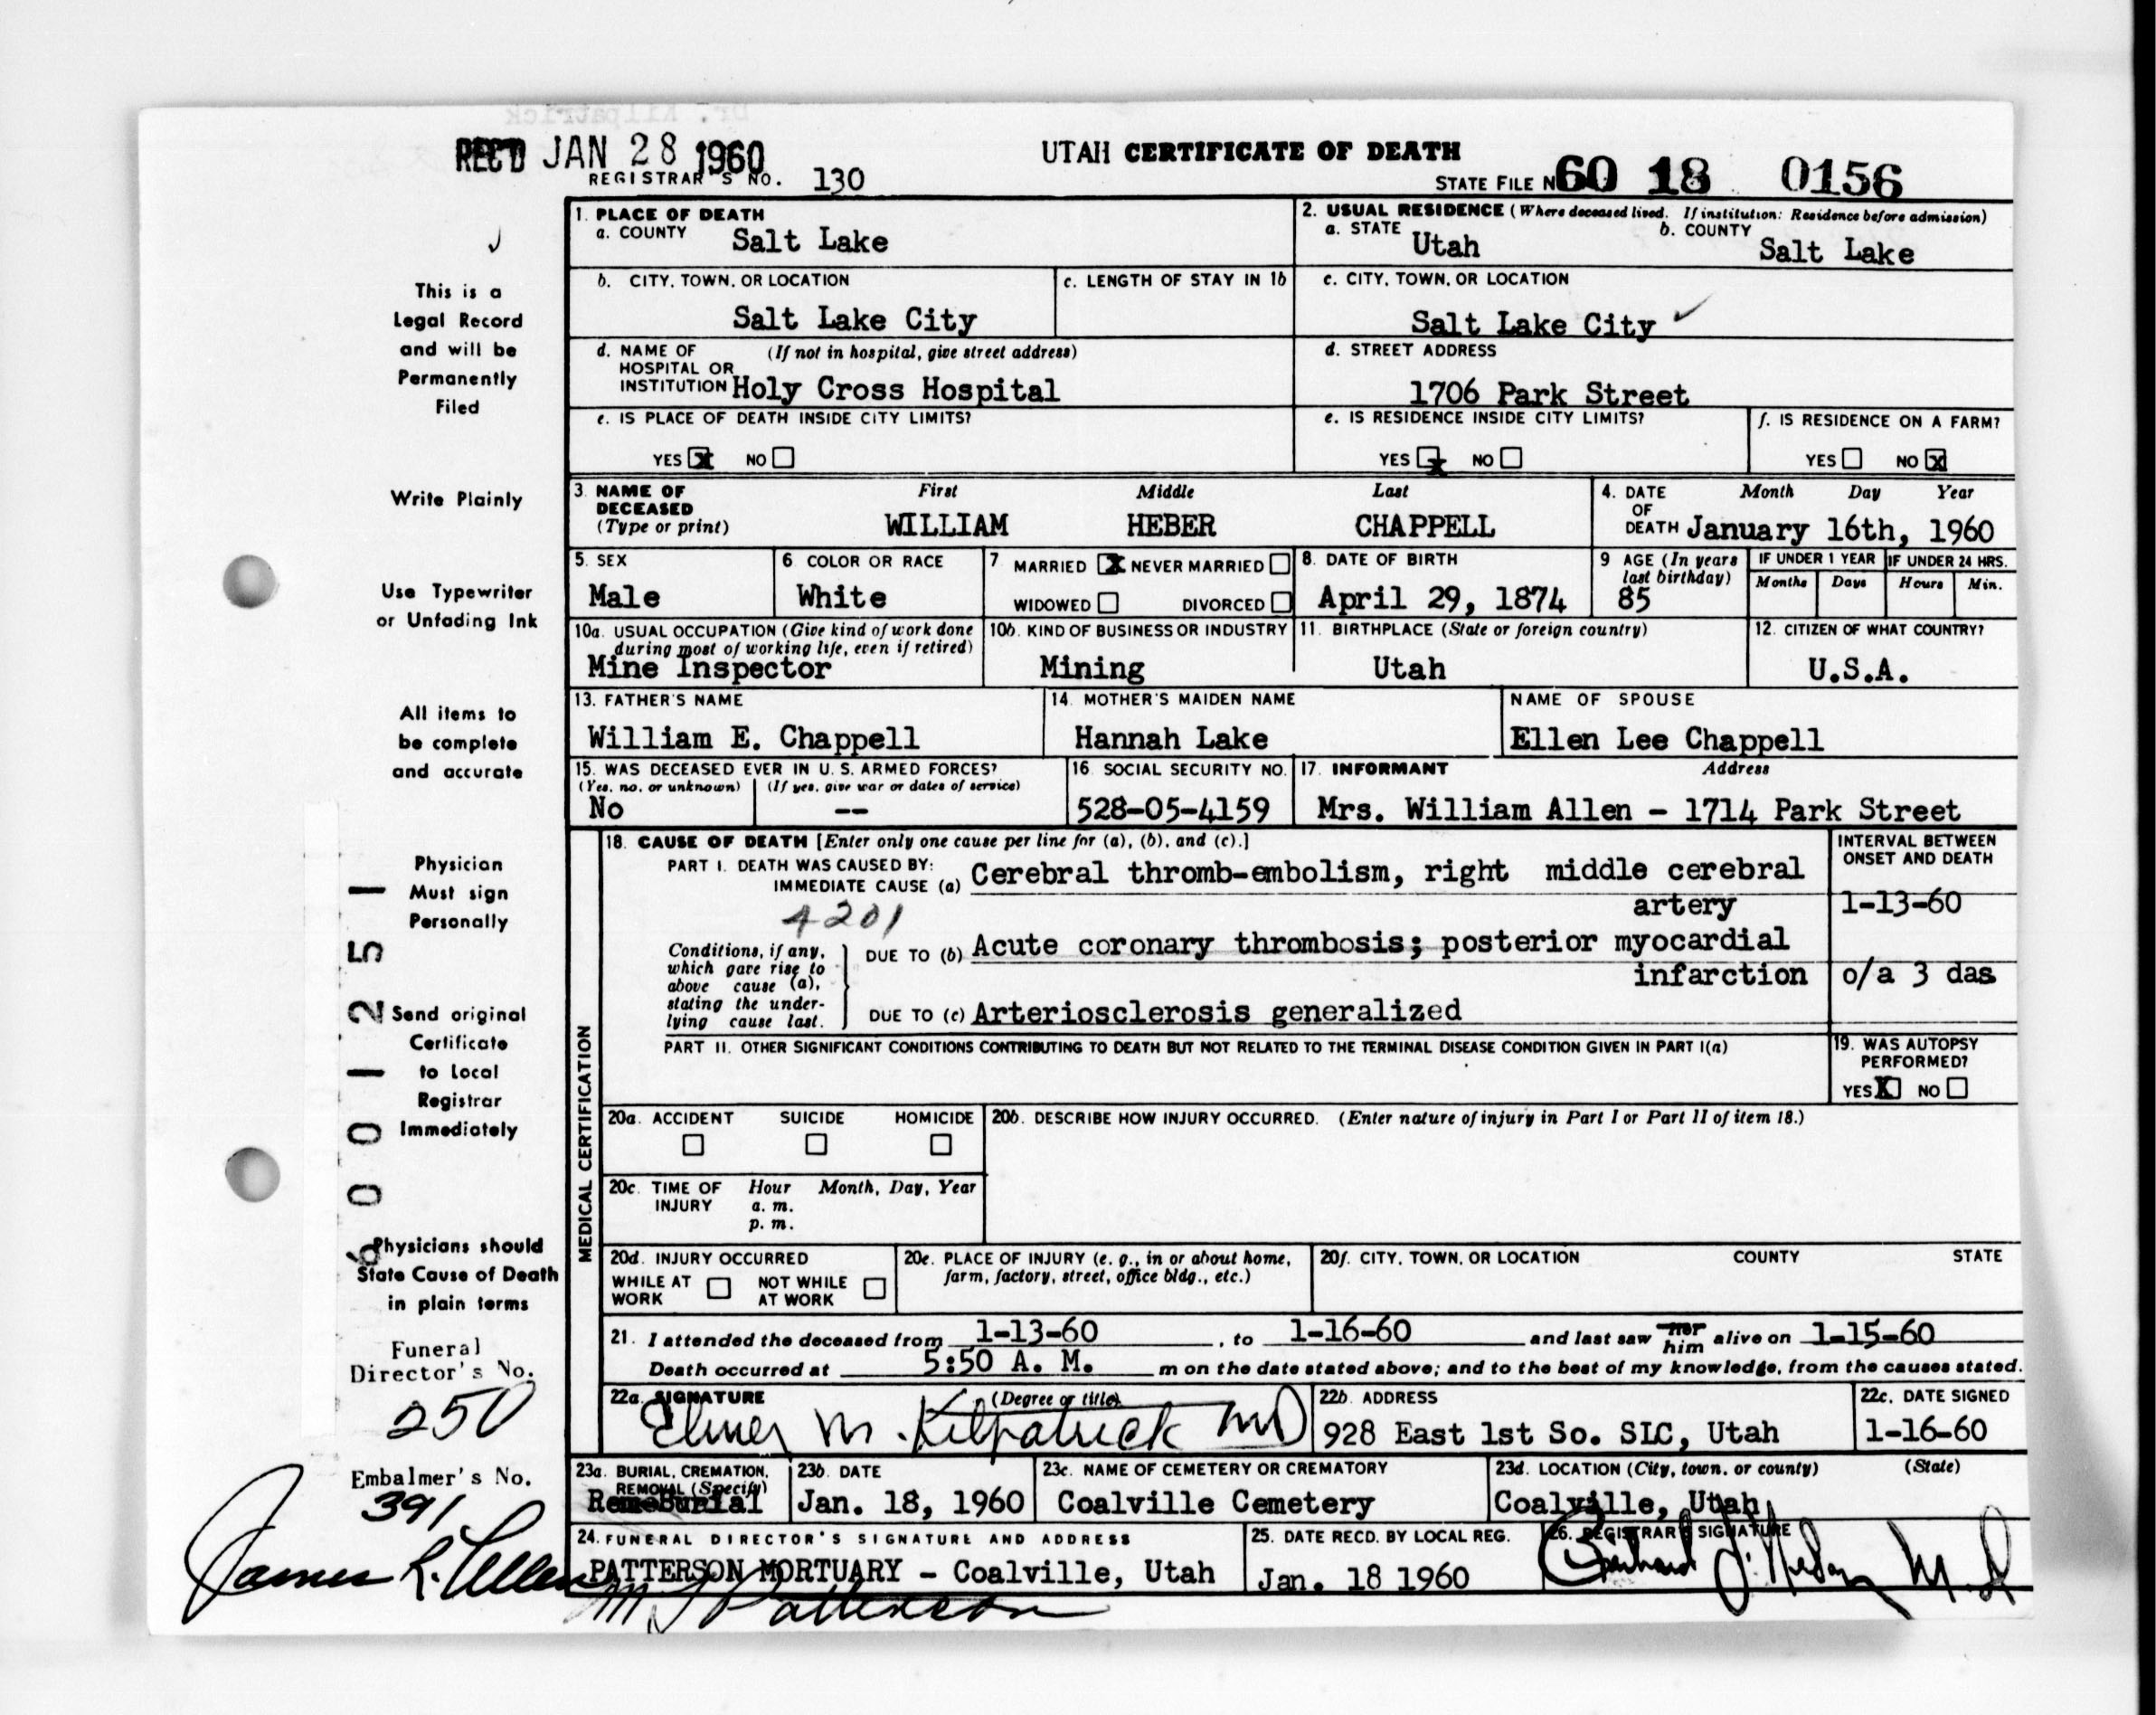 Dr. Kilpatrick
REC'D JAN 28 1960
UTAH CERTIFICATE OF DEATH
REGISTRAR'S NO. 130
STATE FILE NO 60 18 0156
This is a
Legal Record
and will be
Permanently
Filed
Write Plainly
Use Typewriter
or Unfading Ink
All items to
be complete
and accurate
Physician
Must sign
Personally
Send original
Certificate
to Local
Registrar
Immediately
Physicians should
State Cause of Death
in plain terms
Funeral
Director's No.
250
Embalmer's No.
391
James R. Allen
6 0 0 1 2 5 1
1. PLACE OF DEATH
a. COUNTY Salt Lake
2. USUAL RESIDENCE (Where deceased lived. If institution: Residence before admission)
a. STATE Utah b. COUNTY Salt Lake
b. CITY, TOWN, OR LOCATION Salt Lake City
c. LENGTH OF STAY IN 1b
c. CITY, TOWN, OR LOCATION Salt Lake City
d. NAME OF HOSPITAL OR INSTITUTION (If not in hospital, give street address) Holy Cross Hospital
d. STREET ADDRESS 1706 Park Street
e. IS PLACE OF DEATH INSIDE CITY LIMITS?
YES X NO
e. IS RESIDENCE INSIDE CITY LIMITS?
YES X NO
f. IS RESIDENCE ON A FARM?
YES NO X
3. NAME OF DECEASED (Type or print) First Middle Last
WILLIAM HEBER CHAPPELL
4. DATE OF DEATH Month Day Year
January 16th, 1960
5. SEX Male
6 COLOR OR RACE White
7 MARRIED X NEVER MARRIED
WIDOWED DIVORCED
8. DATE OF BIRTH April 29, 1874
9 AGE (In years last birthday) 85
IF UNDER 1 YEAR Months Days
IF UNDER 24 HRS. Hours Min.
10a. USUAL OCCUPATION (Give kind of work done during most of working life, even if retired)
Mine Inspector
10b. KIND OF BUSINESS OR INDUSTRY Mining
11. BIRTHPLACE (State or foreign country) Utah
12. CITIZEN OF WHAT COUNTRY? U.S.A.
13. FATHER'S NAME William E. Chappell
14. MOTHER'S MAIDEN NAME Hannah Lake
NAME OF SPOUSE Ellen Lee Chappell
15. WAS DECEASED EVER IN U. S. ARMED FORCES?
(Yes, no, or unknown) No (If yes, give war or dates of service) --
16. SOCIAL SECURITY NO. 528-05-4159
17. INFORMANT Address
Mrs. William Allen - 1714 Park Street
MEDICAL CERTIFICATION
18. CAUSE OF DEATH [Enter only one cause per line for (a), (b), and (c).]
INTERVAL BETWEEN ONSET AND DEATH
PART I. DEATH WAS CAUSED BY:
IMMEDIATE CAUSE (a) Cerebral thromb-embolism, right middle cerebral
artery 1-13-60
4201
Conditions, if any, which gave rise to above cause (a), stating the underlying cause last.
DUE TO (b) Acute coronary thrombosis; posterior myocardial
infarction o/a 3 das
DUE TO (c) Arteriosclerosis generalized
PART II. OTHER SIGNIFICANT CONDITIONS CONTRIBUTING TO DEATH BUT NOT RELATED TO THE TERMINAL DISEASE CONDITION GIVEN IN PART I(a)
19. WAS AUTOPSY PERFORMED?
YES X NO
20a. ACCIDENT SUICIDE HOMICIDE
20b. DESCRIBE HOW INJURY OCCURRED. (Enter nature of injury in Part I or Part II of item 18.)
20c. TIME OF INJURY Hour Month, Day, Year
a. m.
p. m.
20d. INJURY OCCURRED
WHILE AT WORK NOT WHILE AT WORK
20e. PLACE OF INJURY (e. g., in or about home, farm, factory, street, office bldg., etc.)
20f. CITY, TOWN, OR LOCATION COUNTY STATE
21. I attended the deceased from 1-13-60, to 1-16-60 and last saw her him alive on 1-15-60
Death occurred at 5:50 A. M. m on the date stated above; and to the best of my knowledge, from the causes stated.
22a. SIGNATURE (Degree or title)
Elmer M. Kilpatrick MD
22b. ADDRESS 928 East 1st So. SLC, Utah
22c. DATE SIGNED 1-16-60
23a. BURIAL, CREMATION, REMOVAL (Specify) Burial
23b. DATE Jan. 18, 1960
23c. NAME OF CEMETERY OR CREMATORY Coalville Cemetery
23d. LOCATION (City, town, or county) (State)
Coalville, Utah
24. FUNERAL DIRECTOR'S SIGNATURE AND ADDRESS
PATTERSON MORTUARY - Coalville, Utah
Patterson
25. DATE RECD. BY LOCAL REG. Jan. 18 1960
26. REGISTRAR'S SIGNATURE